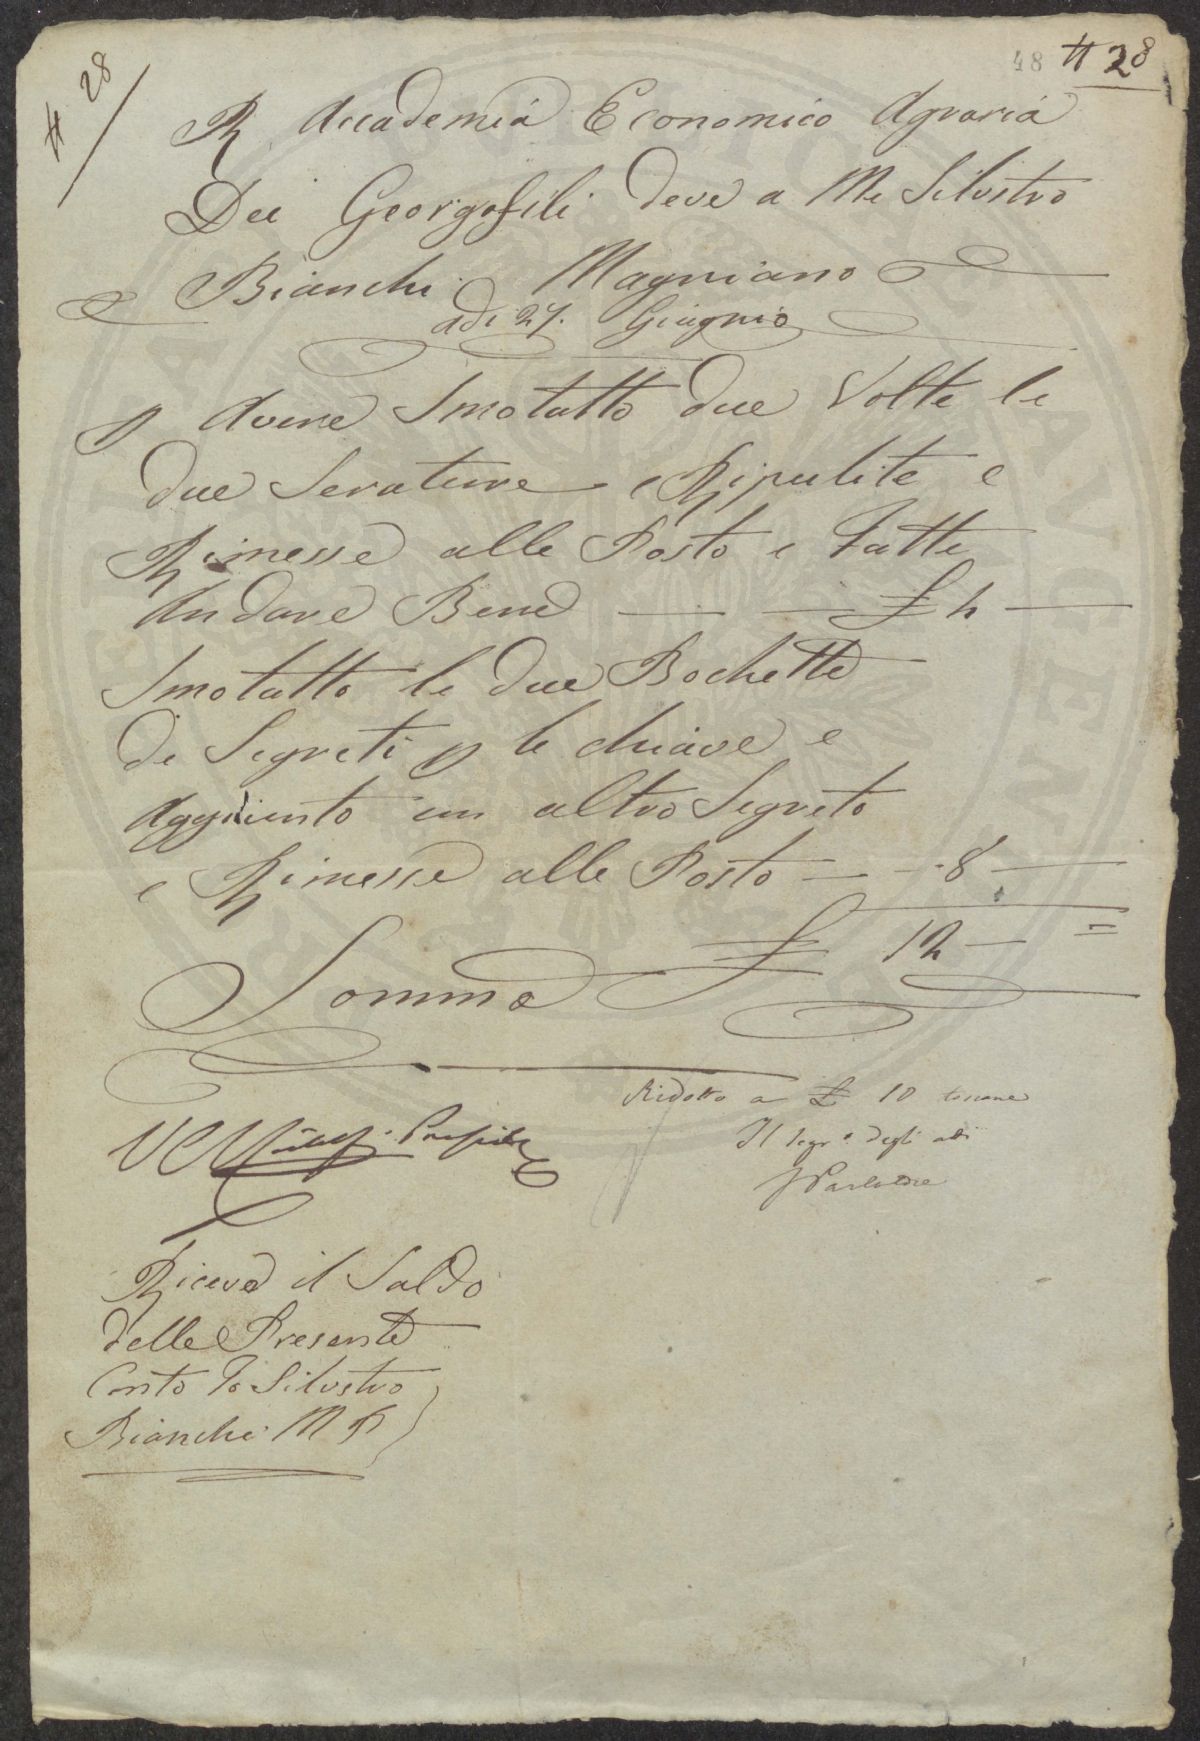 # 28
48 # 28
R. Accademia Economico Agraria
Dei Georgofili deve a Me Silvstro
Bianchi Magniano
adi 27. Giugnio
p Avere Smotatto due Volte le
due Serature e Ripulite e
Rimesse alle Posto e Fatte
Andare Bene £ 4
Smotatto le due Bochette
de Segreti p le chiave e
Aggiunto un altro Segreto
e Rimesse alle Posto - 8
Somma £ 12 =
Ridotto a £ 10 toscane
Il Segr.o degli atti
Ricevo il Saldo
delle Presente
Conto Io Silvstro
Bianchi M P
PUBLICAE
AVGET